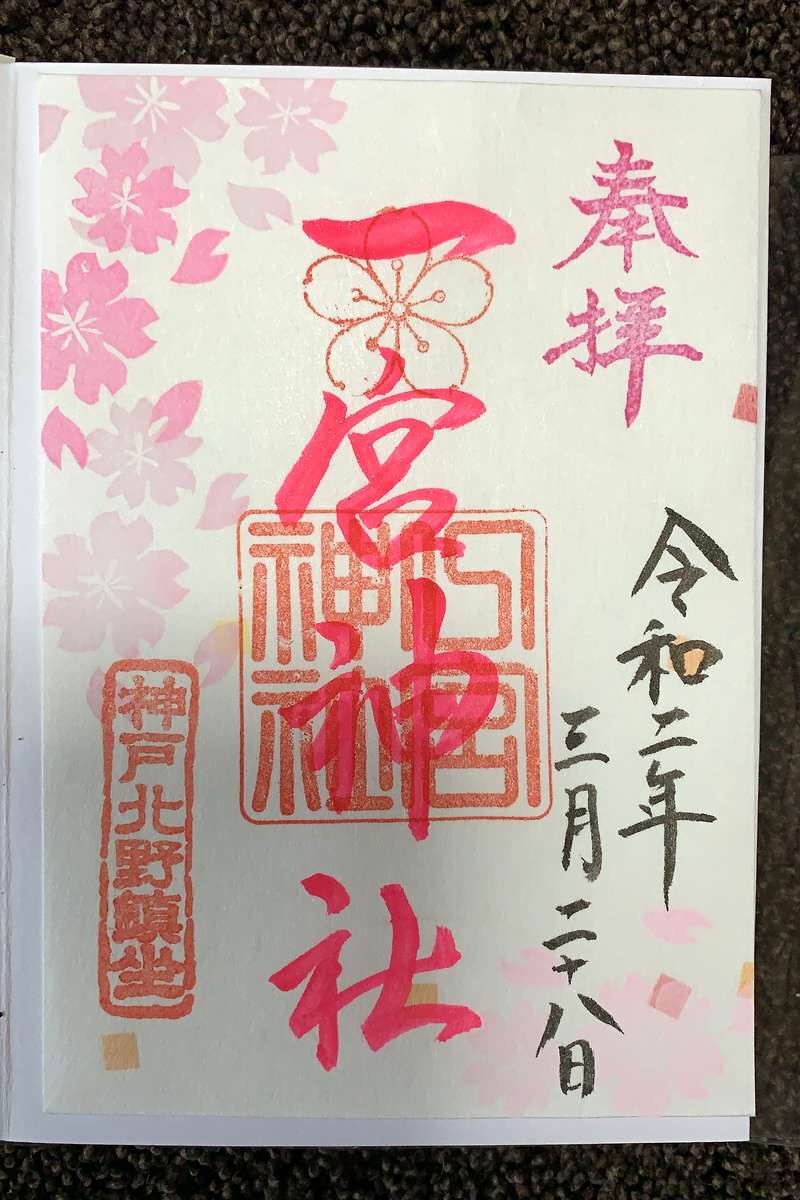 奉拝
令和二年
三月二十八日
一宮神社
一宮神社
神戸北野鎮坐